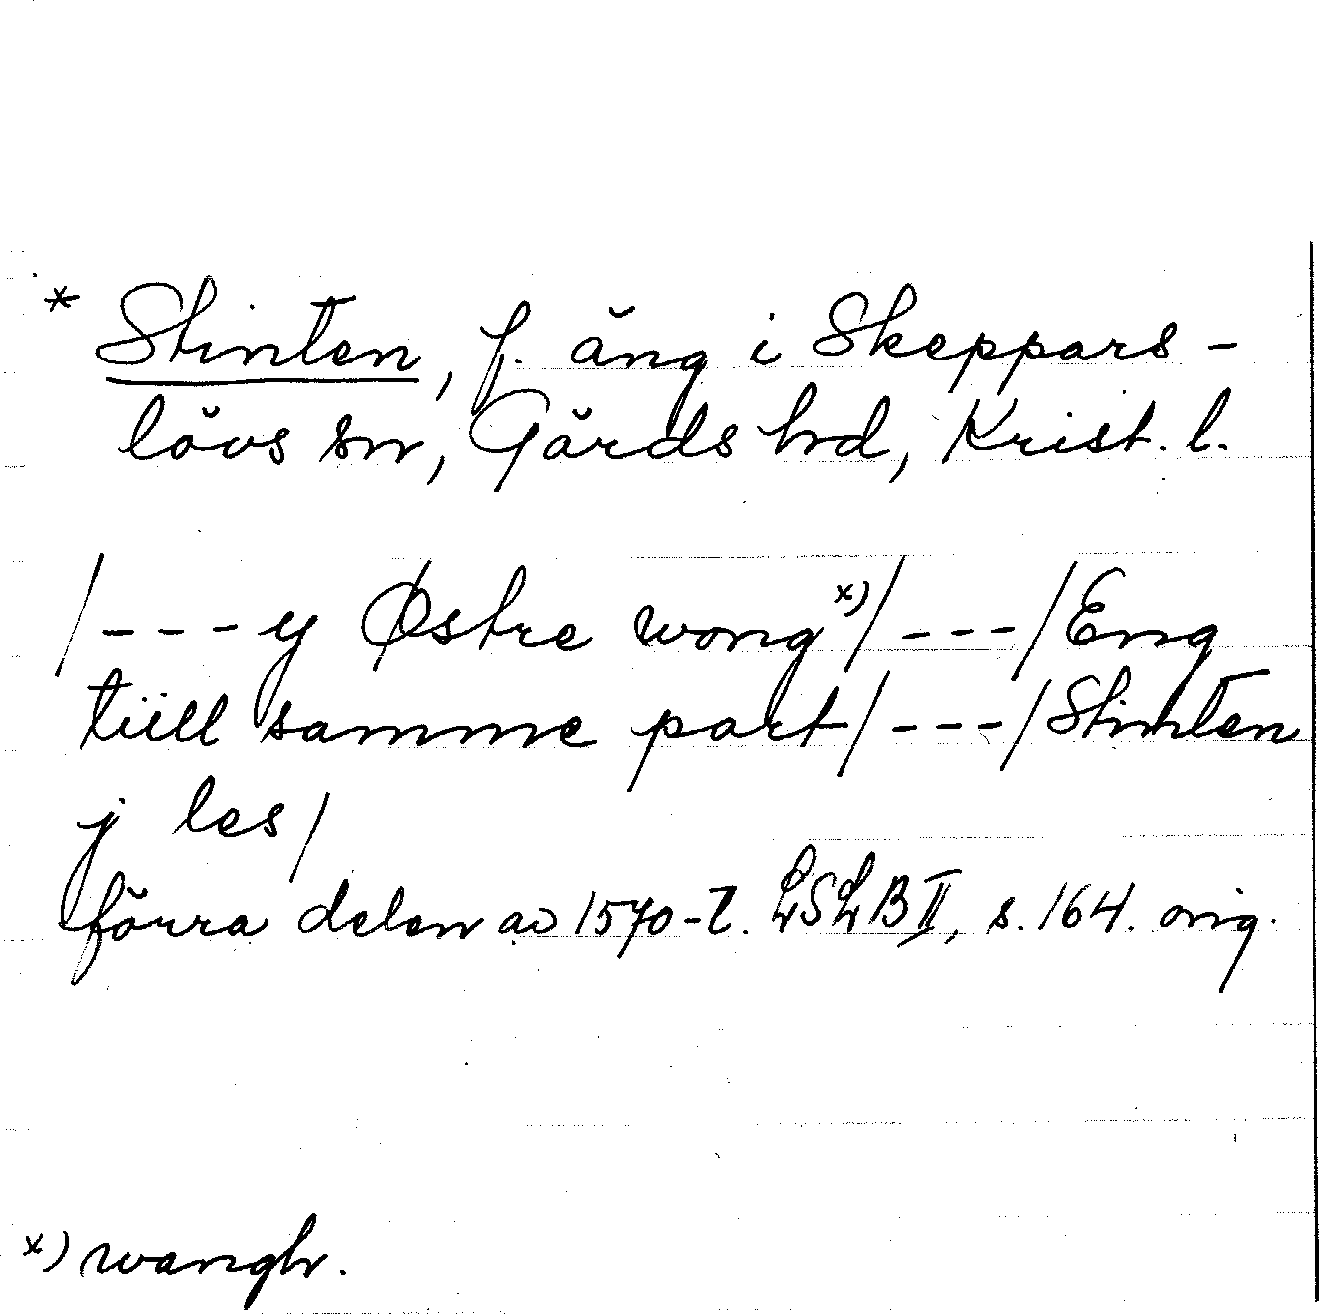 * Stinten, f. äng i Skeppars-
lövs sn, Gärds hd, Krist. l.
/---y Østre wong x)/---/Eng
tiill samme part/---/Stinten
j les/
förra delen av 1570-t. LSLB II, s. 164. orig.
x) wangh.